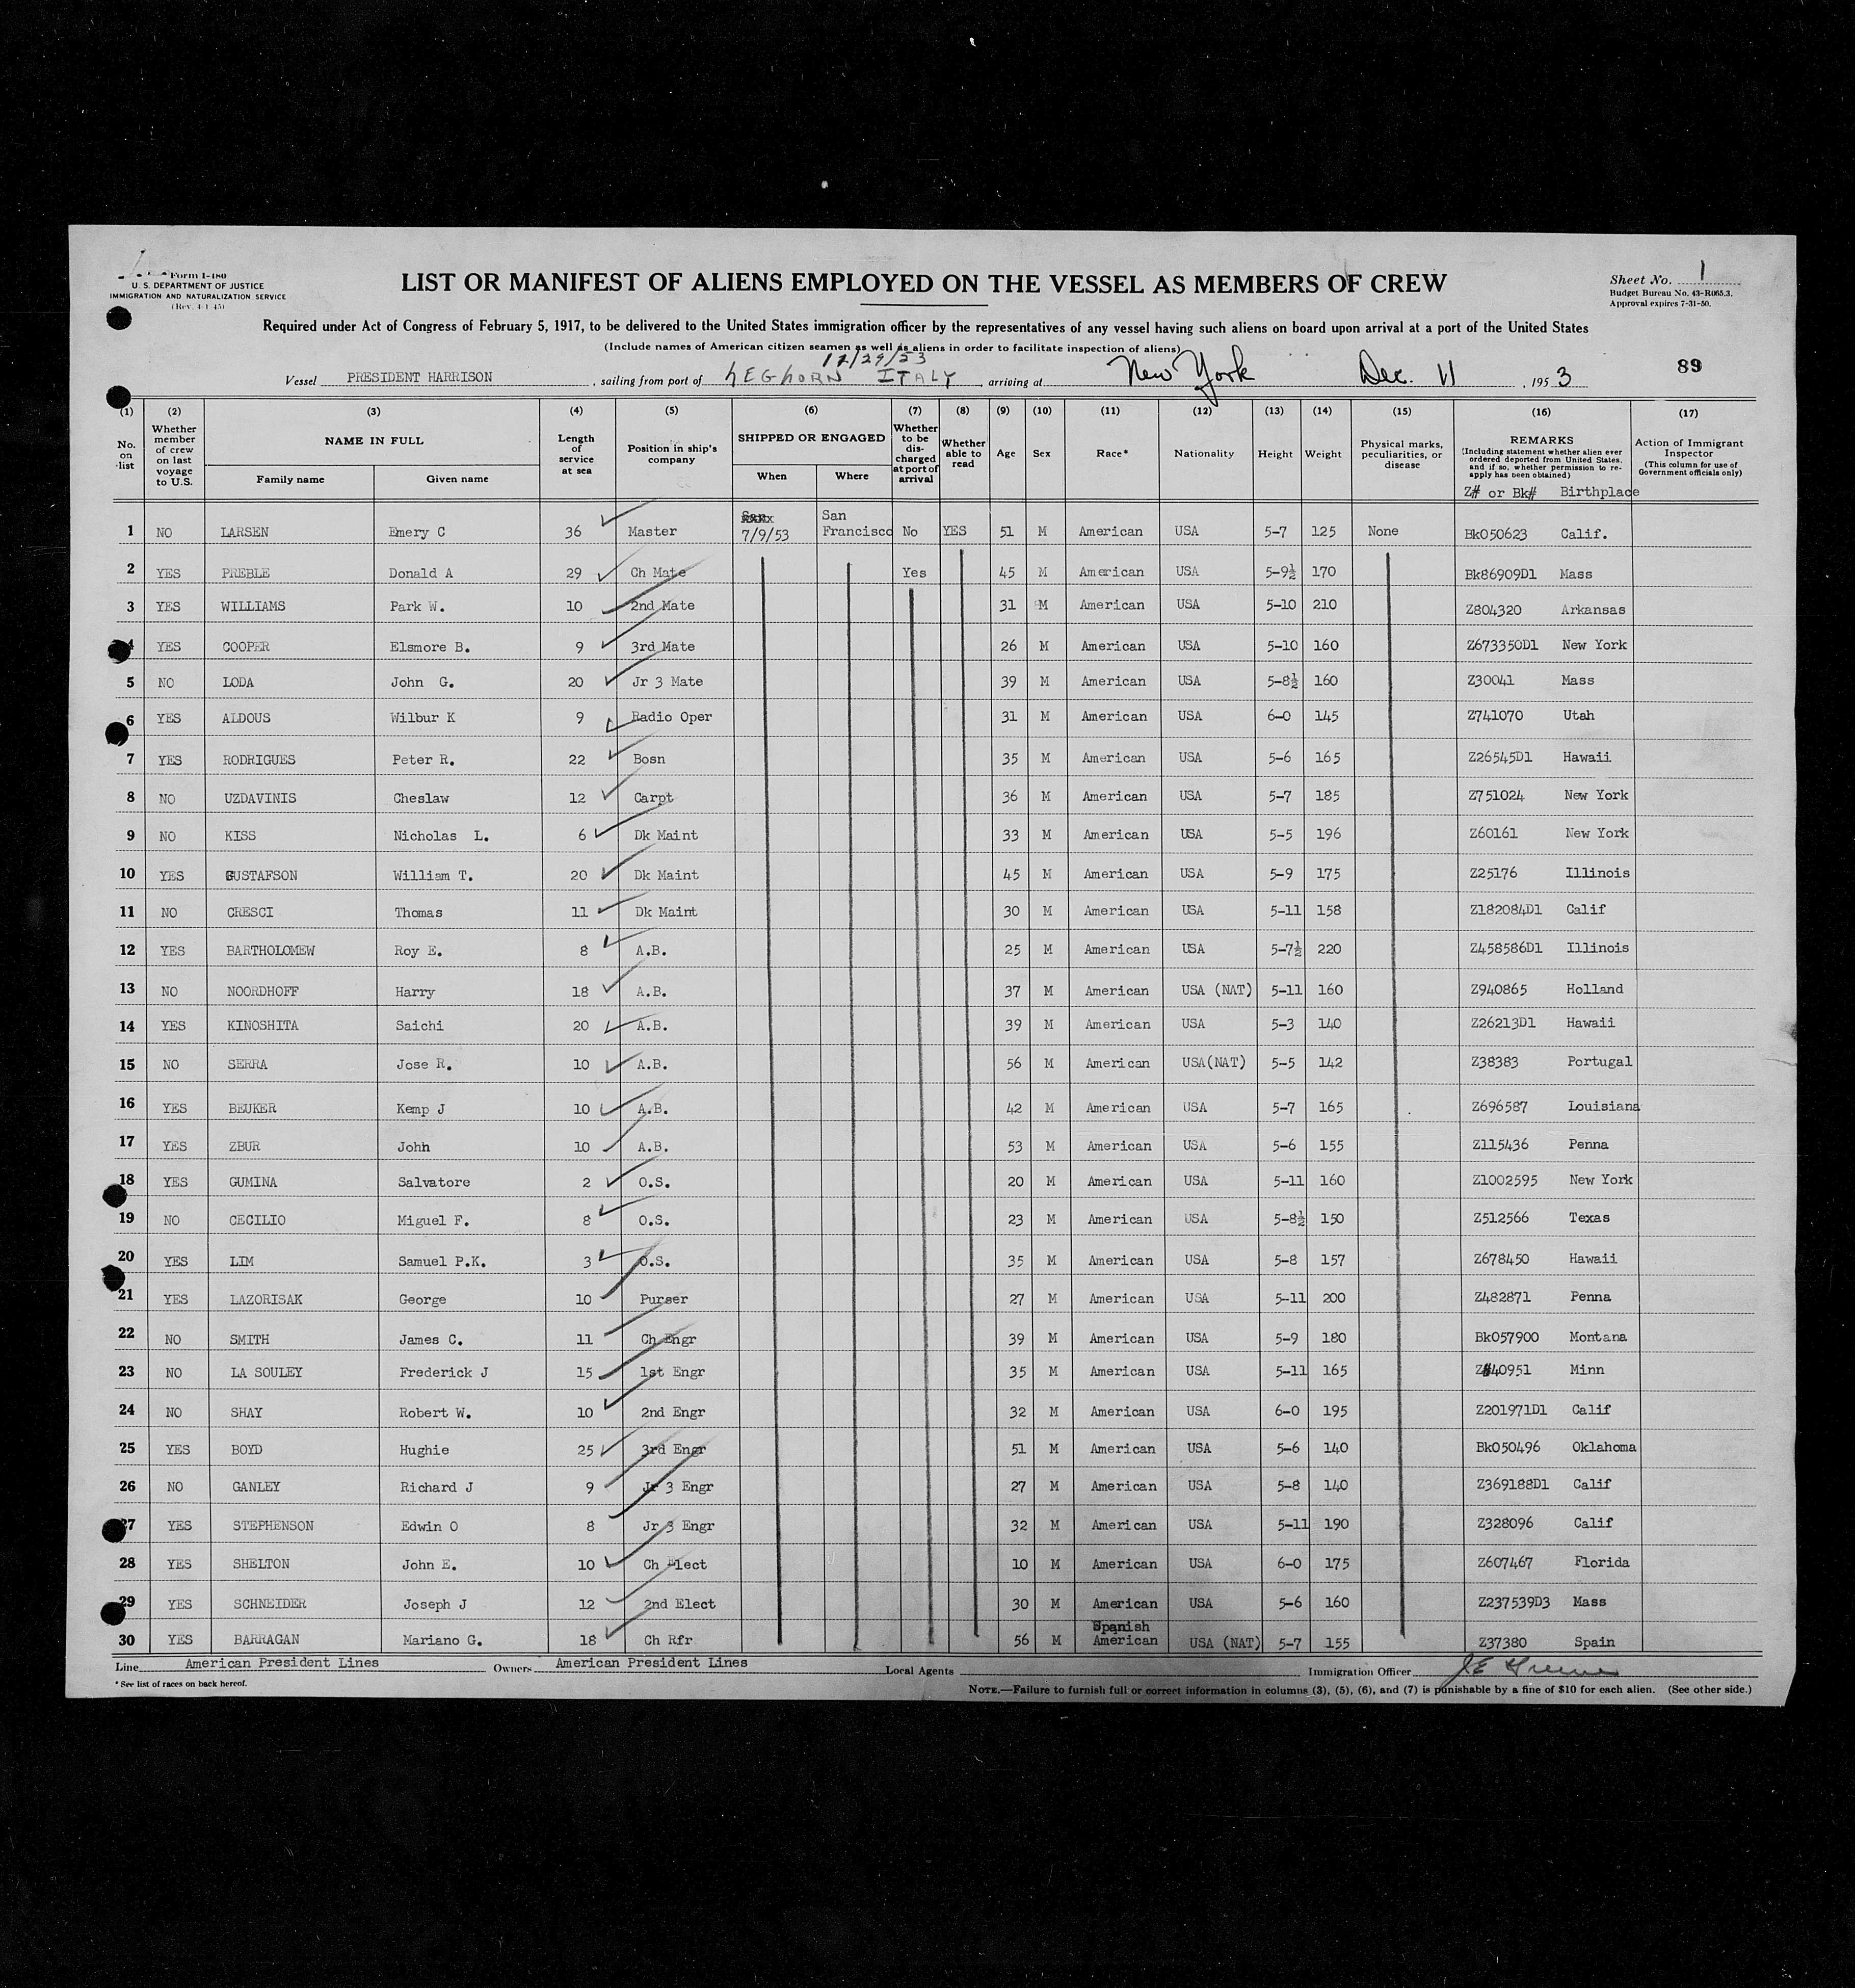 Form I-180
U. S. DEPARTMENT OF JUSTICE
IMMIGRATION AND NATURALIZATION SERVICE
(Rev. 4-1-45)
LIST OR MANIFEST OF ALIENS EMPLOYED ON THE VESSEL AS MEMBERS OF CREW
Sheet No. 1
Budget Bureau No. 43-R065.3.
Approval expires 7-31-50.
Required under Act of Congress of February 5, 1917, to be delivered to the United States immigration officer by the representatives of any vessel having such aliens on board upon arrival at a port of the United States
(Include names of American citizen seamen as well as aliens in order to facilitate inspection of aliens)
11/29/53
Vessel PRESIDENT HARRISON, sailing from port of LEGHORN ITALY, arriving at New York Dec. 11, 1953
89
(1) (2) (3) (4) (5) (6) (7) (8) (9) (10) (11) (12) (13) (14) (15) (16) (17)
No. on list Whether member of crew on last voyage to U.S. NAME IN FULL Family name Given name Length of service at sea Position in ship's company SHIPPED OR ENGAGED When Where Whether to be discharged at port of arrival Whether able to read Age Sex Race* Nationality Height Weight Physical marks, peculiarities, or disease REMARKS (Including statement whether alien ever ordered deported from United States, and if so, whether permission to re-apply has been obtained) Z# or Bk# Birthplace Action of Immigrant Inspector (This column for use of Government officials only)
1 NO LARSEN Emery C 36 Master 7/9/53 San Francisco No YES 51 M American USA 5-7 125 None Bk050623 Calif.
2 YES PREBLE Donald A 29 Ch Mate Yes 45 M American USA 5-9½ 170 Bk86909D1 Mass
3 YES WILLIAMS Park W. 10 2nd Mate 31 M American USA 5-10 210 Z804320 Arkansas
4 YES COOPER Elsmore B. 9 3rd Mate 26 M American USA 5-10 160 Z673350D1 New York
5 NO LODA John G. 20 Jr 3 Mate 39 M American USA 5-8½ 160 Z30041 Mass
6 YES ALDOUS Wilbur K 9 Radio Oper 31 M American USA 6-0 145 Z741070 Utah
7 YES RODRIGUES Peter R. 22 Bosn 35 M American USA 5-6 165 Z26545D1 Hawaii
8 NO UZDAVINIS Cheslaw 12 Carpt 36 M American USA 5-7 185 Z751024 New York
9 NO KISS Nicholas L. 6 Dk Maint 33 M American USA 5-5 196 Z60161 New York
10 YES GUSTAFSON William T. 20 Dk Maint 45 M American USA 5-9 175 Z25176 Illinois
11 NO CRESCI Thomas 11 Dk Maint 30 M American USA 5-11 158 Z182084D1 Calif
12 YES BARTHOLOMEW Roy E. 8 A.B. 25 M American USA 5-7½ 220 Z458586D1 Illinois
13 NO NOORDHOFF Harry 18 A.B. 37 M American USA (NAT) 5-11 160 Z940865 Holland
14 YES KINOSHITA Saichi 20 A.B. 39 M American USA 5-3 140 Z26213D1 Hawaii
15 NO SERRA Jose R. 10 A.B. 56 M American USA(NAT) 5-5 142 Z38383 Portugal
16 YES BEUKER Kemp J 10 A.B. 42 M American USA 5-7 165 Z696587 Louisiana
17 YES ZBUR John 10 A.B. 53 M American USA 5-6 155 Z115436 Penna
18 YES GUMINA Salvatore 2 O.S. 20 M American USA 5-11 160 Z1002595 New York
19 NO CECILIO Miguel F. 8 O.S. 23 M American USA 5-8½ 150 Z512566 Texas
20 YES LIM Samuel P.K. 3 O.S. 35 M American USA 5-8 157 Z678450 Hawaii
21 YES LAZORISAK George 10 Purser 27 M American USA 5-11 200 Z482871 Penna
22 NO SMITH James C. 11 Ch Engr 39 M American USA 5-9 180 Bk057900 Montana
23 NO LA SOULEY Frederick J 15 1st Engr 35 M American USA 5-11 165 Z#40951 Minn
24 NO SHAY Robert W. 10 2nd Engr 32 M American USA 6-0 195 Z201971D1 Calif
25 YES BOYD Hughie 25 3rd Engr 51 M American USA 5-6 140 Bk050496 Oklahoma
26 NO GANLEY Richard J 9 Jr 3 Engr 27 M American USA 5-8 140 Z369188D1 Calif
27 YES STEPHENSON Edwin O 8 Jr 3 Engr 32 M American USA 5-11 190 Z328096 Calif
28 YES SHELTON John E. 10 Ch Elect 10 M American USA 6-0 175 Z607467 Florida
29 YES SCHNEIDER Joseph J 12 2nd Elect 30 M American USA 5-6 160 Z237539D3 Mass
30 YES BARRAGAN Mariano G. 18 Ch Rfr 56 M Spanish American USA (NAT) 5-7 155 Z37380 Spain
Line American President Lines Owners American President Lines Local Agents Immigration Officer
* See list of races on back hereof.
NOTE.—Failure to furnish full or correct information in columns (3), (5), (6), and (7) is punishable by a fine of $10 for each alien. (See other side.)